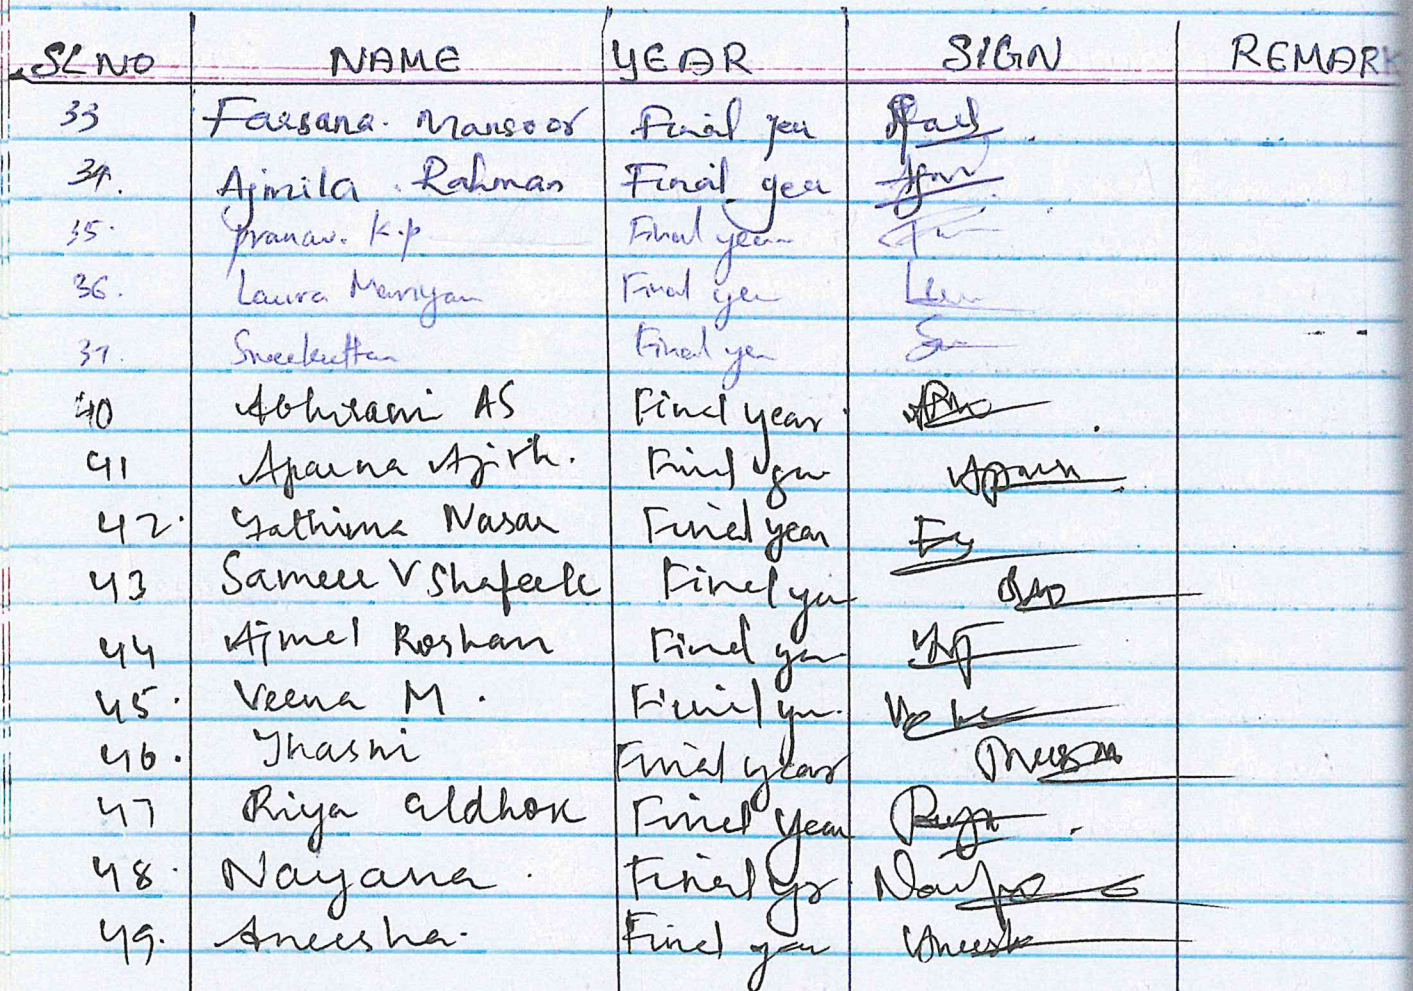 SL NO NAME YEAR SIGN REMARK
33 Farsana. Mansoor Final year
34. Ajmila . Rahman Final year
35. Pranav. K.P Final year
36. Laura Mariyam Final year
37. Sreekuttan Final year
40 Abhirami AS Final year
41 Aparna Ajith. Final year Aparna
42. Fathima Nasar Final year
43 Sameer V Shafeek Final year
44 Ajmel Roshan Final year
45. Veena M. Final year
46. Jhasni Final year
47 Riya Eldhose Final year Riya
48. Nayana. Final yr
49. Aneesha. Final year Aneesh